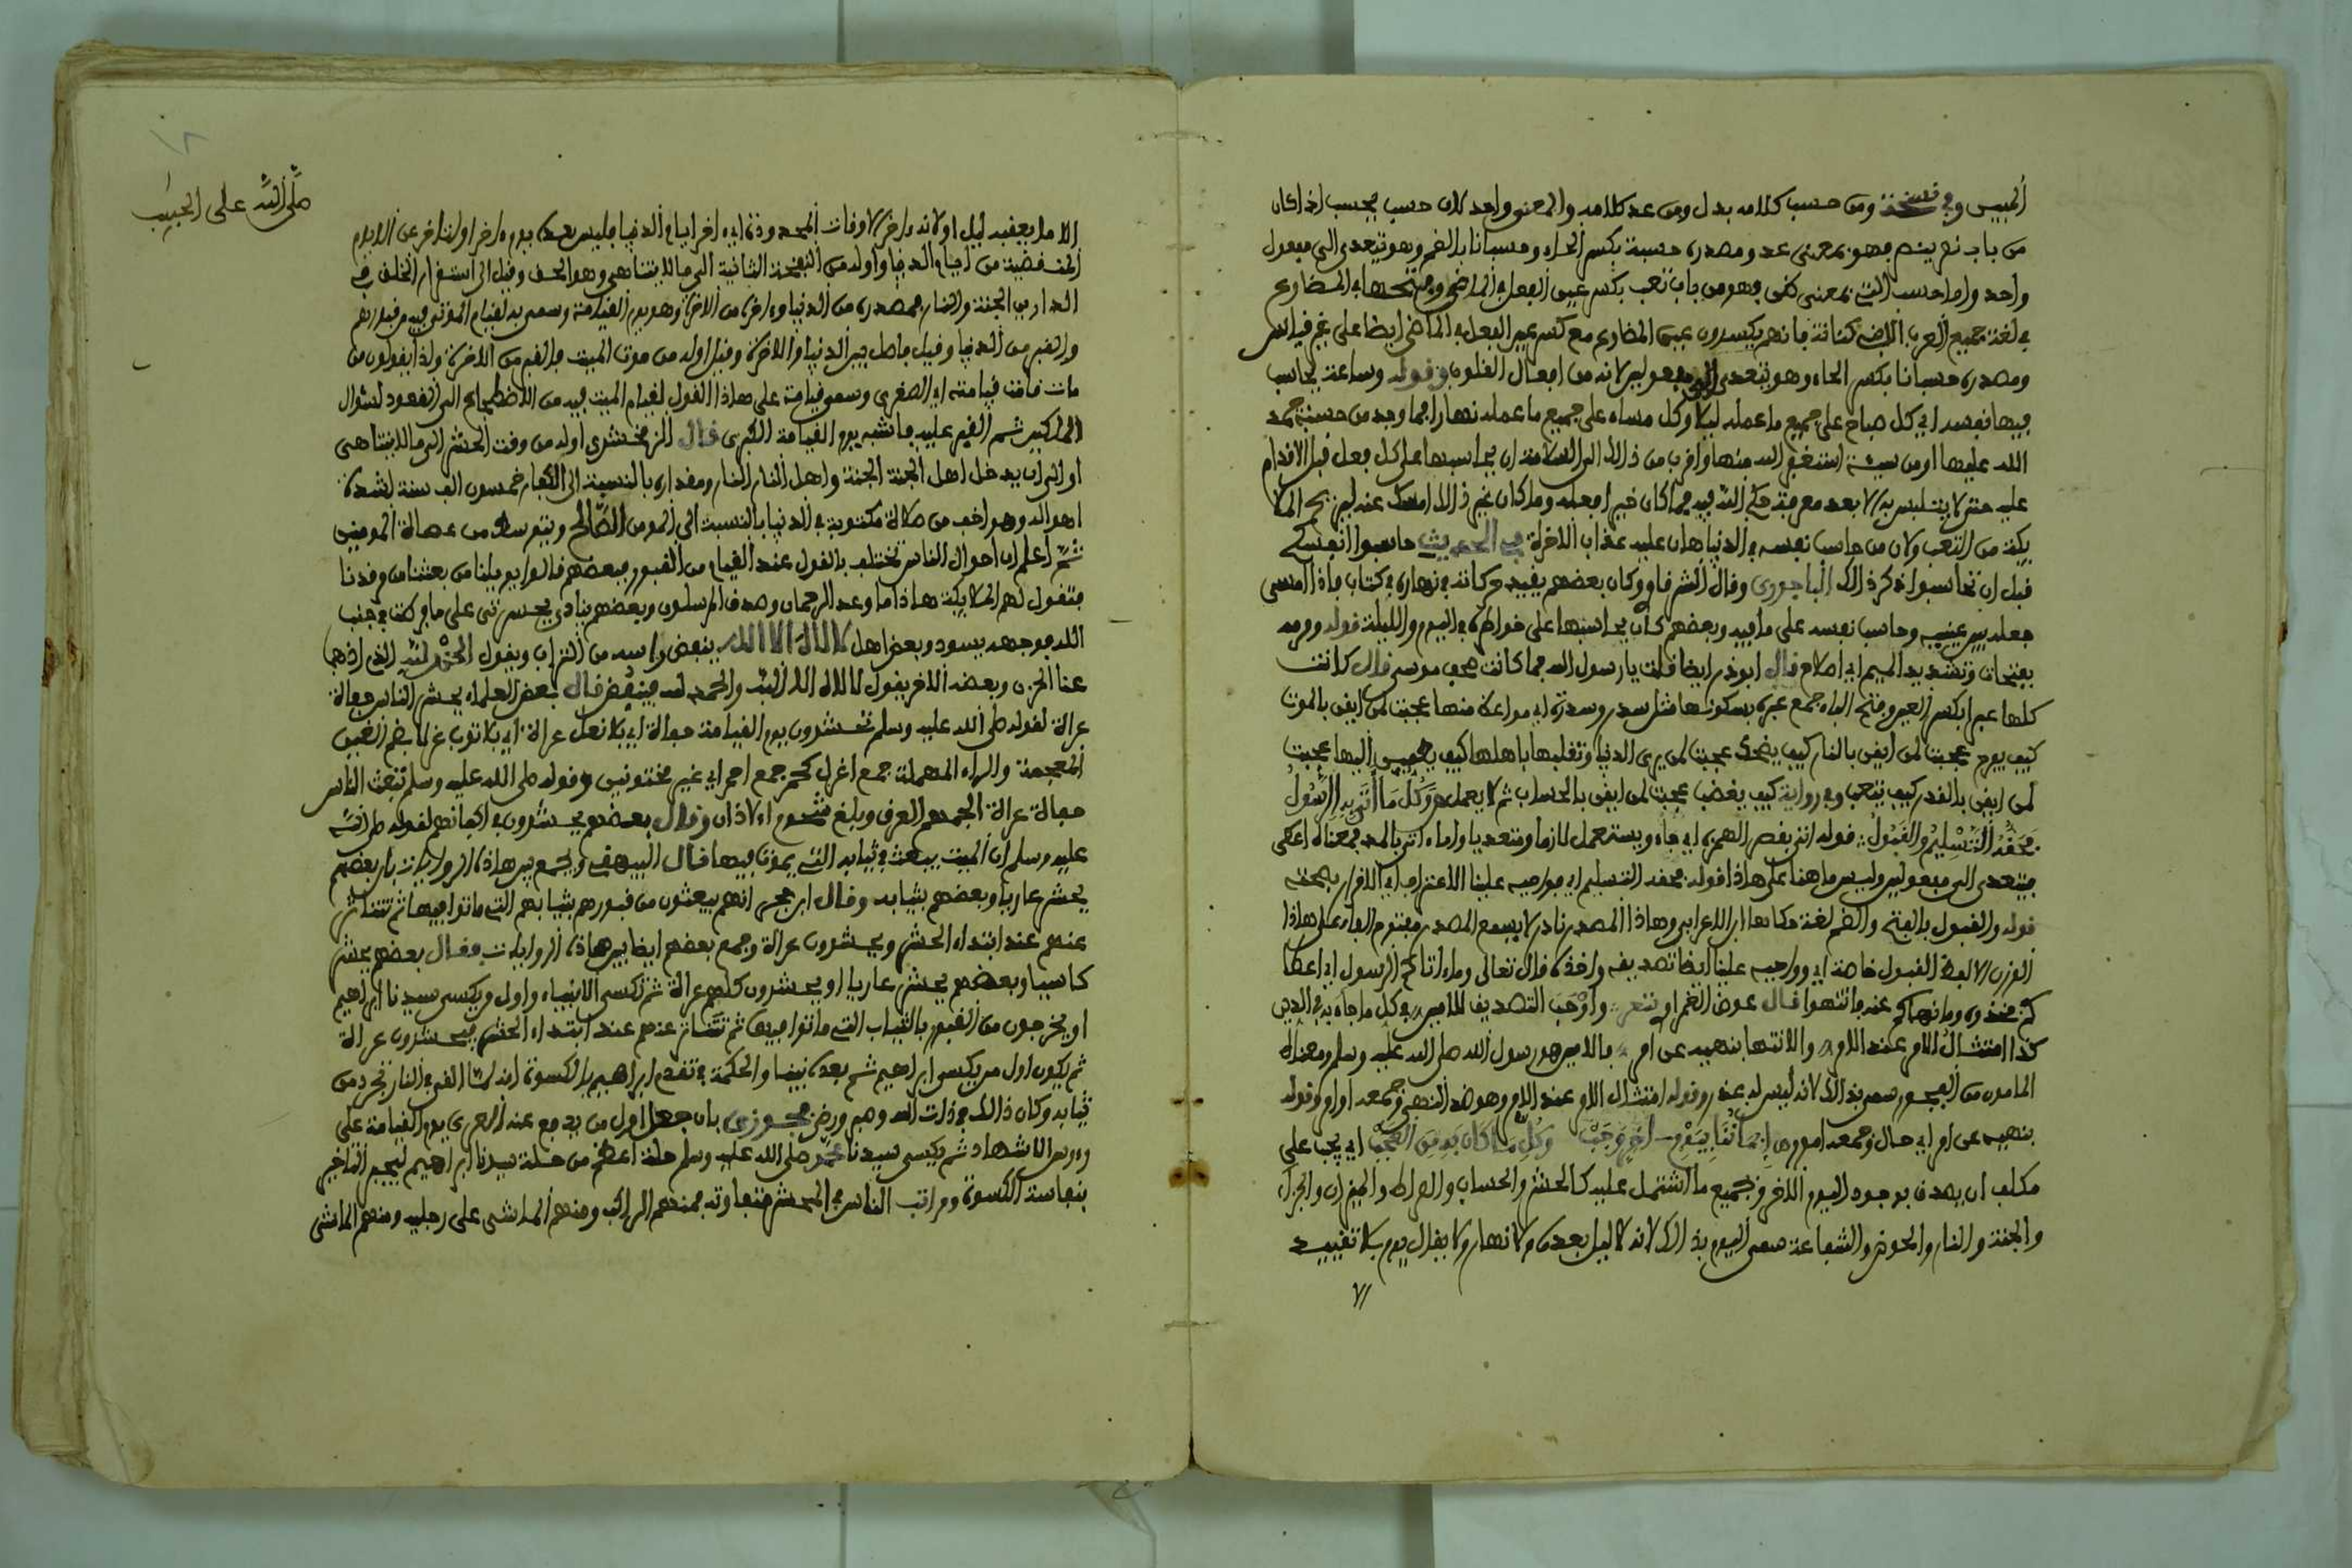 المبيين وفي نسخة ومن حسب كلامه بدل ومن عد كلامه والمعنى واحد لان حسب يحسب اذا كان
من باب نصر ينصر فهو بمعنى عد ومصدره حسبة بكسر الحاء وحسبانا بالضم وهو يتعدى الى مفعول
واحد واما حسب التي بمعنى ظن فهو من باب تعب بكسر عين الفعل في الماضي وفتحها في المضارع
في لغة جميع العرب الا بني كنانة فانهم يكسرون عين المضارع مع كسر عين الفعل في الماضي ايضا على غير قياس
ومصدره حسبانا بكسر الحاء وهو يتعدى الى مفعولين لانه من افعال القلوب وقوله وساعة يحاسب
فيها نفسه اي كل صباح على جميع ما عمله ليلا وكل مساء على جميع ما عمله نهارا فما وجد من حسنة حمد
الله عليها او من سيئة استغفر الله منها واقرب من ذلك الى السلامة ان يحاسبها على كل فعل قبل الاقدام
عليه حتى لا يتلبس به الا بعد معرفة حكم الله فيه فما كان خيرا فعله وما كان غير ذلك امسك عنه ليريح الملا
يكة من التعب ولان من حاسب نفسه في الدنيا هان عليه عذاب الاخرة في الحديث حاسبوا انفسكم
قبل ان تحاسبوا ذكر ذلك الباجوري وقال الشرقاوي وكان بعضهم يقيد حركاته في نهاره في كتاب فاذا امسى
جعله بين عينيه وحاسب نفسه على ما فيه وبعضهم كان يحاسبها على خواطره في اليوم والليلة قوله وهمه
بفتحات وتشديد الميم اي اصلاح قال ابو ذر ايضا قلت يا رسول الله فما كانت صحف موسى قال كانت
كلها عبرا بكسر العين وفتح الباء جمع عبرة بسكونها مثل سدر وسدرة اي مواعظ منها عجبت لمن ايقن بالموت
كيف يفرح عجبت لمن ايقن بالنار كيف يضحك عجبت لمن يرى الدنيا وتقلبها باهلها كيف يطمئن اليها عجبت
لمن ايقن بالقدر كيف يتعب وفي رواية كيف يغضب عجبت لمن ايقن بالحساب ثم لا يعمل وَكُلُّ مَا أَتَى بِهِ الرَّسُولُ
فَحَقُّهُ التَّسْلِيمُ وَالقَبُولُ قوله اتى بقصر الهمزة اي جاء ويستعمل لازما ومتعديا واما اتى بالمد فمعناه اعطى
فيتعدى الى مفعولين وليس ما هنا على هذا قوله فحقه التسليم اي فواجبه علينا الاعتراف اي الاقرار بصحته
قوله والقبول بالفتح والضم لغة حكاها ابن الاعرابي وهذا المصدر نادر لا يسمع المصدر مفتوح الفاء على هذا
الوزن الا لفظ القبول خاصة اي وواجبه علينا ايضا تصديقه واخذه قال تعالى وما ءاتاكم الرسول اي اعطا
كم فخذوه وما نهاكم عنه فانتهوا قال عوض الغمراوي شعر وَأَوْجَبَ التصديق للامين في كل ما جاء به في الدين
كذا امتثال الامر عند الامر والانتها بنهيه عن امر فالامين هو رسول الله صلى الله عليه وسلم ومعناه
المامون من الفجور سمي بذلك لانه ليس له غدر وقوله امتثال الامر عند الامر وهو ضد النهي وجمعه اوامر وقوله
بنهيه عن امر اي حال وجمعه امور وكل ما كان به من العجب اي يجب على
مكلف ان يصدق بوجود اليوم الاخر وبجميع ما اشتمل عليه كالحشر والحساب والصراط والميزان والجزاء
والجنة والنار والحوض والشفاعة سمي اليوم بذلك لانه لا ليل بعده ولا نهار ولا يقال يوم بلا تقييد
صلى الله على الحبيب
الا ما يعقبه ليل او لانه ءاخر الاوقات المحدودة اي اخر ايام الدنيا فليس بعده يوم ءاخر او لتاخره عن الايام
المنقضية من ايام الدنيا واوله من النفخة الثانية الى ما لا يتناهى وهو الحق وقيل الى استقرار الخلق في
الدارين الجنة والنار فصدره من الدنيا وءاخره من الاخرة وهو يوم القيامة وسمي به لقيام الموتى فيه من قبورهم
والقبر من الدنيا وقيل فاصل بين الدنيا والاخرة وقيل اوله من موت الميت فالقبر من الاخرة ولذا يقولون من
مات قامت قيامته اي الصغرى وسمي قيامة على هذا القول لقيام الميت فيه من الاضطجاع الى القعود لسؤال
الملكين ثم القبر عليه فاشبه يوم القيامة الكبرى قال الزمخشري اوله من وقت الحشر الى ما لا يتناهى
او الى ان يدخل اهل الجنة الجنة واهل النار النار ومقداره بالنسبة الى الكفار خمسون الف سنة لشدة
اهواله وهو اخف من صلاة مكتوبة في الدنيا بالنسبة الى المومن الصالح ويتوسط من عصاة المومنين
ثم اعلم ان احوال الناس تختلف بالقول عند القيام من القبور فبعضهم قالوا يويلنا من بعثنا من مرقدنا
فتقول لهم الملايكة هاذا ما وعد الرحمان وصدق المرسلون وبعضهم ينادي يحسرتى على ما فرطت في جنب
الله فوجهه يسود وبعض اهل لا اله الا الله ينفض راسه من التراب ويقول الحمد لله الذي اذهب
عنا الحزن وبعض الاخر يقول لا اله الا الله والحمد لله فيبيض قال بعض العلماء يحشر الناس حفاة
عراة لقوله صلى الله عليه وسلم تحشرون يوم القيامة حفاة اي بلا نعل عراة اي بلا ثوب غرلا بضم الغين
المعجمة والراء المهملة جمع اغرل كحمر جمع احمر اي غير مختونين وقوله صلى الله عليه وسلم تبعث الناس
حفاة عراة الجمهم العرق وبلغ شحوم الاذان وقال بعضهم يحشرون في اكفانهم لقوله صلى الله
عليه وسلم ان الميت يبعث في ثيابه التي يموت فيها قال البيهقي ويجمع بين هاذه الروايات بان بعضهم
يحشر عاريا وبعضهم بثيابه وقال ابن حجر انهم يبعثون من قبورهم بثيابهم التي ماتوا فيها ثم تتناثر
عنهم عند ابتداء الحشر ويحشرون عراة وجمع بعضهم ايضا بين هاذه الروايات فقال بعضهم يحشر
كاسيا وبعضهم يحشر عاريا او يحشرون كلهم عراة ثم تكسى الانبياء واول من يكسى سيدنا ابراهيم
او يخرجون من القبور بالثياب التي ماتوا فيها ثم تتناثر عنهم عند ابتداء الحشر فيحشرون عراة
ثم يكون اول من يكسى ابراهيم ثم بعده نبينا والحكمة في تقدم ابراهيم بالكسوة انه لما القي في النار تجرد من
ثيابه وكان ذلك في ذات الله وصبر ورضي فجوزي بان جعل اول من يدفع عنه العري يوم القيامة على
رءوس الاشهاد ثم يكسى سيدنا محمد صلى الله عليه وسلم حلة اعظم من حلة سيدنا ابراهيم ليجبر التاخير
بنفاسة الكسوة ومراتب الناس في المحشر متفاوتة فمنهم الراكب ومنهم الماشي على رجليه ومنهم الماشي